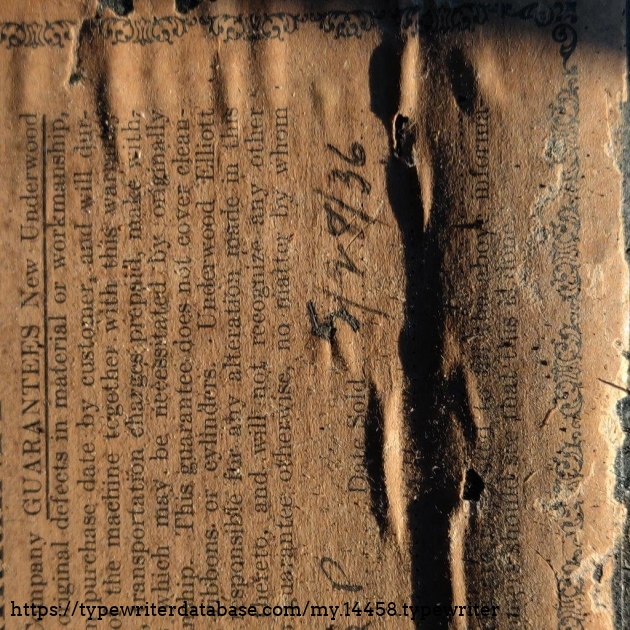 mpany GUARANTEES New Underwood
iginal defects in material or workmanship,
purchase date by customer, and will dur-
the machine together with this war
ransportation charges prepaid, make with-
which may be necessitated by originally
up. This guarantee does not cover clean-
bbons or cylinders. Underwood Elliott
sponsible for any alteration made in this
cketo, and will not recognize any other
arantee otherwise, no matter by whom
3/28/36
Date Sold
P
above informa-
should see that this
https://typewriterdatabase.com/my.14458.typewriter